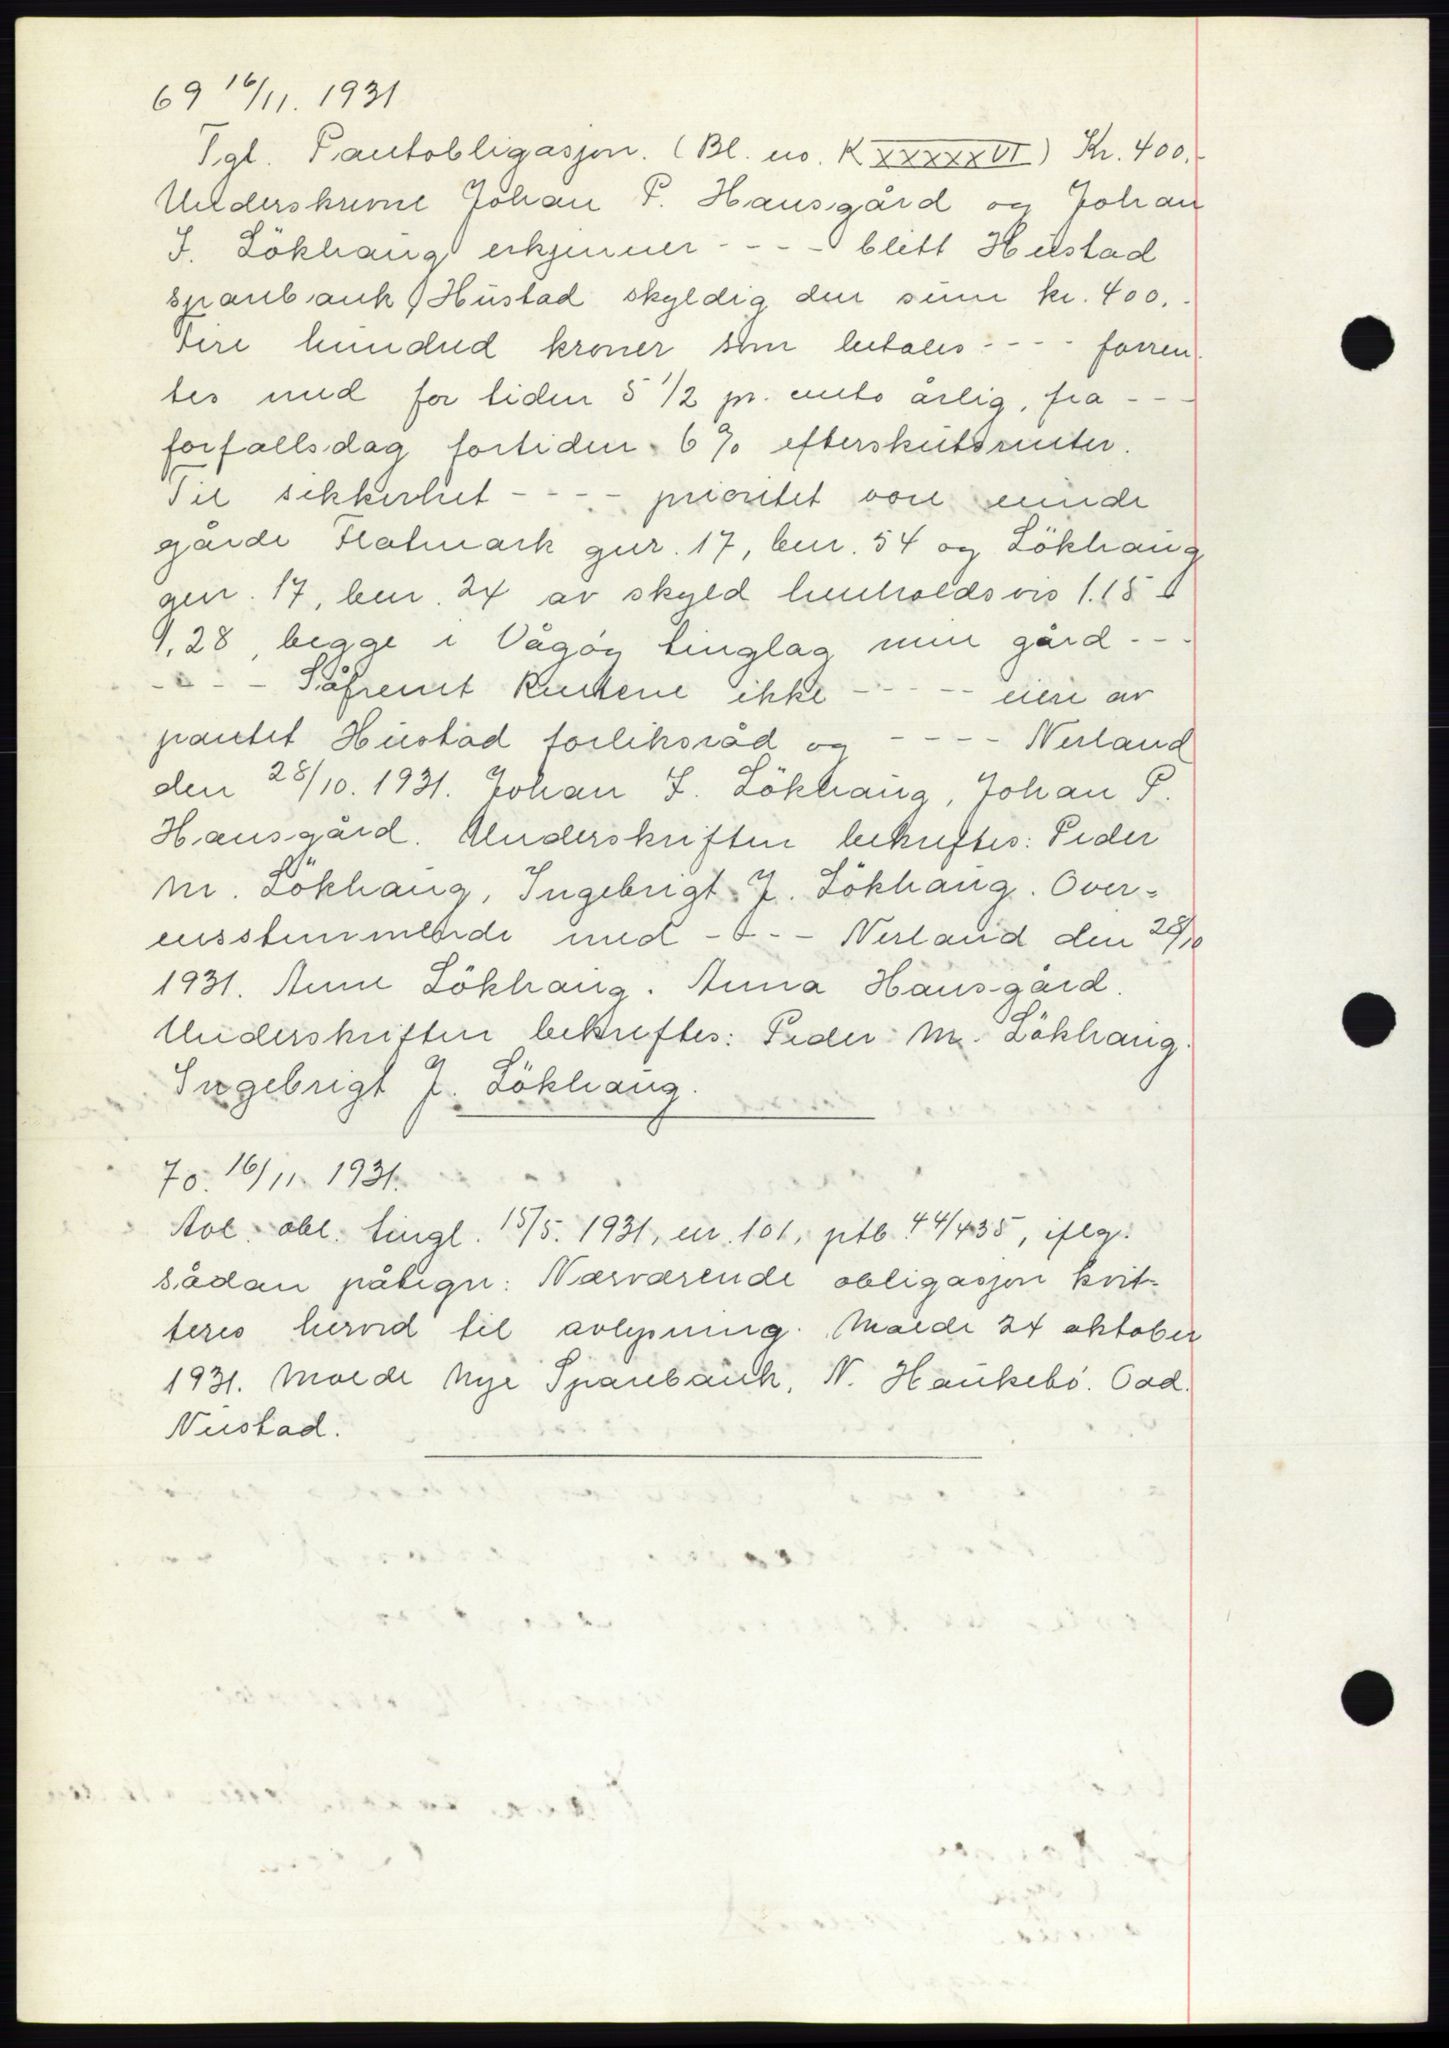 69 16/11. 1931
Tgl. Pantobligasjon. (Bl. no. K XXXXXVI) Kr. 400.-
Underskrevne Johan P. Hausgård og Johan
I. Lökhaug erkjenner - - - - blitt Hustad
sparebank, Hustad skyldig den sum kr. 400.-
Fire hundred kroner som betales - - - - forren
tes med for tiden 5 1/2 pr. cento årlig, fra - - -
forfallsdag fortiden 6 % efterskutsrenter.
Til sikkerhet - - - - prioritet vore eiende
gårde Flatmark gnr. 17, bnr. 54 og Lökhaug
gnr. 17, bnr. 24 av skyld henholdsvis 1.15 &
1,28, begge i Vågøy tinglag min gård - - -
- - - - Såfremt rentene ikke - - - - - eiere av
pantet Hustad forliksråd og - - - - Nerland
den 28/10. 1931. Johan I. Lökhaug, Johan P.
Hausgård. Underskriften bekreftes: Peder
M. Lökhaug, Ingebrigt J. Lökhaug. Over-
ensstemmende med - - - - Nerland den 28/10
1931. Anne Lökhaug. Anna Hausgård.
Underskriften bekreftes: Peder M. Lökhaug.
Ingebrigt J. Lökhaug.
70. 16/11. 1931.
Avl. obl. tingl. 15/5. 1931, nr. 101, ptb. 44/435, iflg.
sådan påtegn: Nærværende obligasjon kvit-
teres herved til avlysning. Molde 24 oktober
1931. Molde Nye Sparebank, N. Haukebö. Odd.
Nustad.